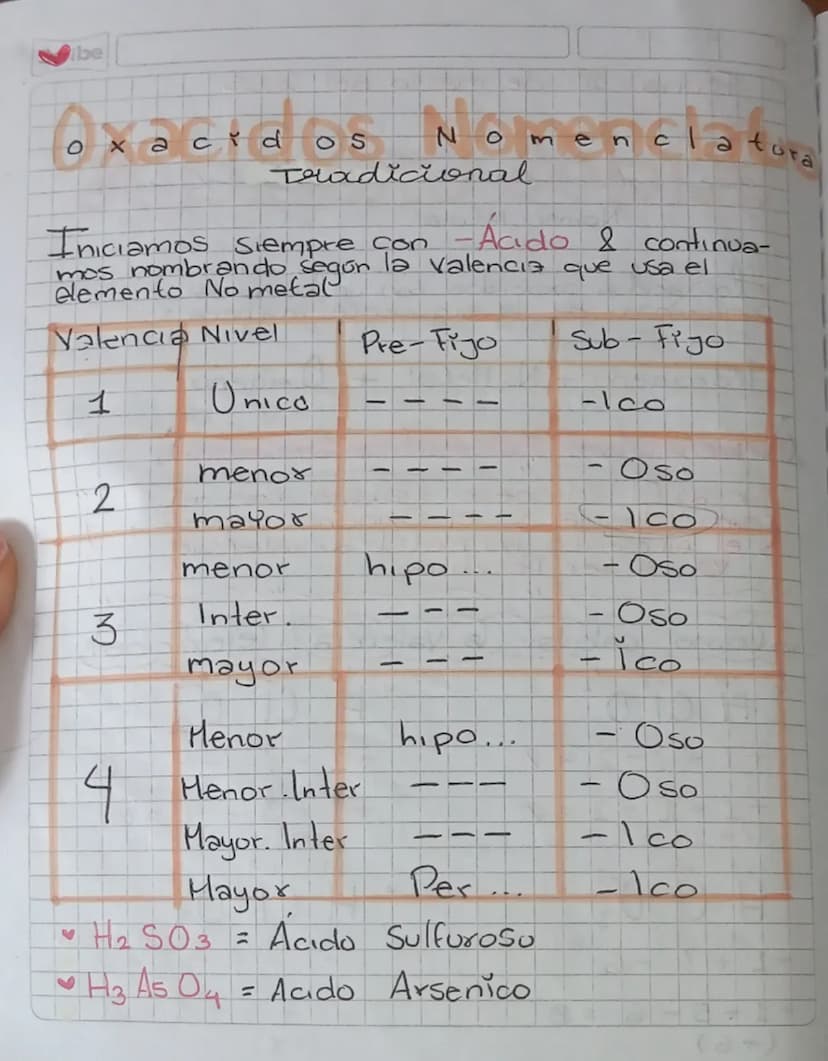 Vibe
Oxacidos Nomenclatura
Tradicional
Iniciamos siempre con -Ácido & continua-
mos nombrando según la valencia que usa el
elemento No metal
Valencia Nivel Pre-Fijo Sub-Fijo
1 Unico ---- -Ico
2 menor ---- -Oso
mayor ---- -Ico
3 menor hipo... -Oso
Inter. --- -Oso
mayor --- -Ico
4 Menor hipo... -Oso
Menor.Inter --- -Oso
Mayor.Inter --- -Ico
Mayor Per... -Ico
H2SO3 = Ácido Sulfuroso
H3AsO4 = Acido Arsenico